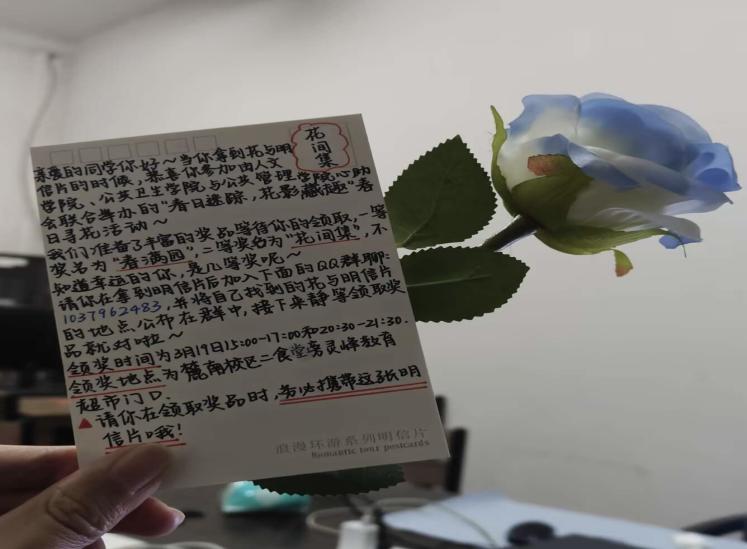 花
间
集
亲爱的同学你好～当你拿到花与明
信片的时候，恭喜你参加由人文
学院、公共卫生学院与公共管理学院心助
会联合举办的"春日迷踪，花影藏趣"春
日寻花活动～
我们准备了丰富的奖品等待你的领取，一等
奖名为"春满园"，二等奖名为"花间集"，不
知道幸运的你，是几等奖呢～
请你在拿到明信片后加入下面的QQ群聊：
1037962483，并将自己找到的花与明信片
的地点公布在群中，接下来静等领取奖
品就对啦～
领奖时间为3月19日15:00-17:00和20:30-21:30.
领奖地点为麓南校区二食堂旁灵峰教育
超市门口.
▲请你在领取奖品时，务必携带这张明
信片哦！
浪漫环游系列明信片
Romantic tour postcards